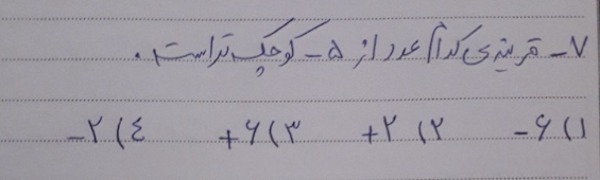 ۷- قرینه‌ی کدام عدد از ۵- کوچک‌تر است.
۱) ۶-  ۲) ۲+  ۳) ۶+  ۴) ۲-